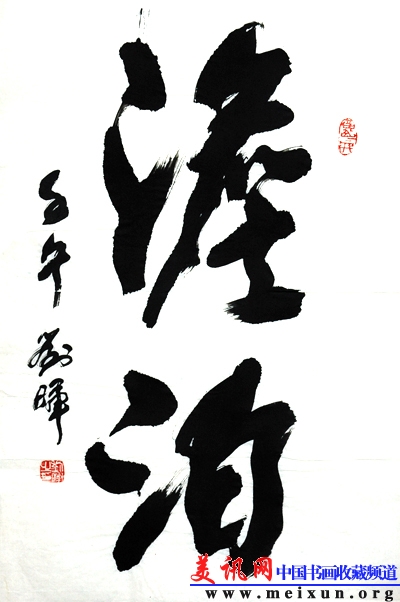 澹泊
壬午
劉暉
美讯网 中国书画收藏频道
www.meixun.org